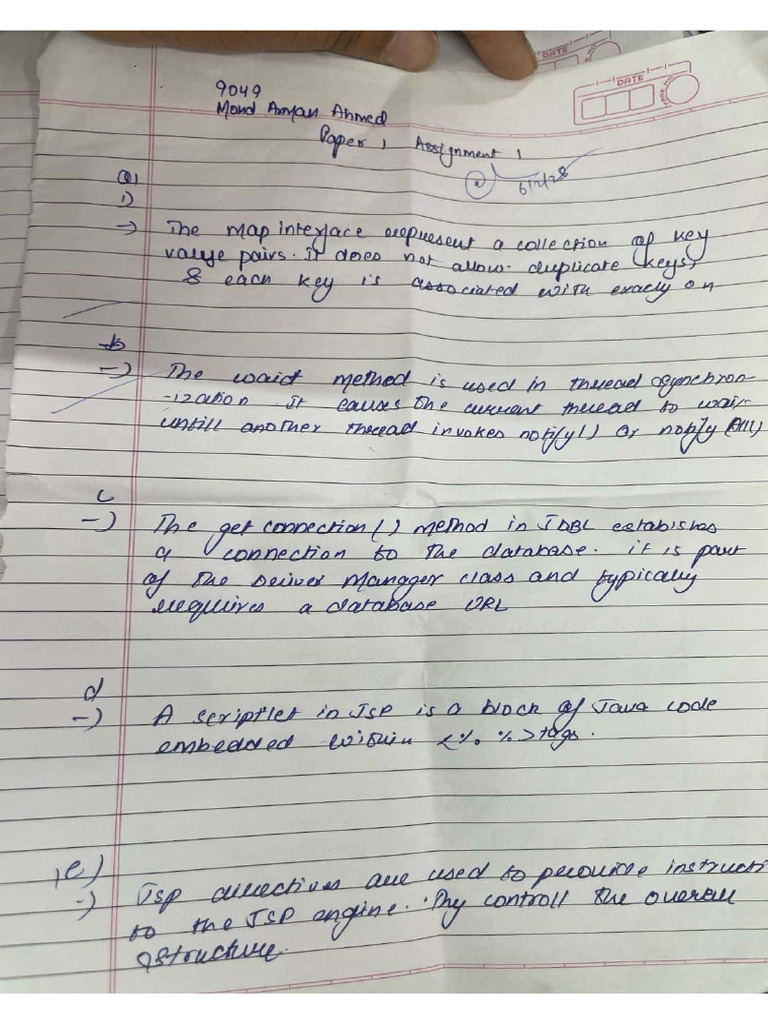 DATE
DATE
9049
Mohd Aryan Ahmed
Paper 1 Assignment 1
Q1
1)
→ The map interface represent a collection of key
value pairs. It does not allow duplicate keys,
& each key is associated with exacly on
b
→) The waid method is used in thread synchron
-ization It causes the current thread to wait
untill another thread invokes notify() or notify (All)
c
-) The get connection() method in JDBC establishes
a connection to the database. it is part
of the Driver Manager class and typically
requires a database URL
d
-) A scriptlet in JSP is a block of Java code
embedded within <% %> tags.
e)
-) Jsp directives are used to provide instructi
to the JSP engine. They controll the overall
structure.